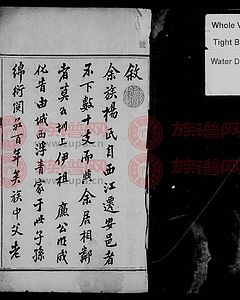 敘
余族楊氏自西江遷安邑者
不下數十支而與余居相鄰
者莫如圳上伊祖 廣公明成
化间由城西湾青家于此子孫
綿衍閱百年矣族中父老
Whole V
Tight B
Water D
族谱网